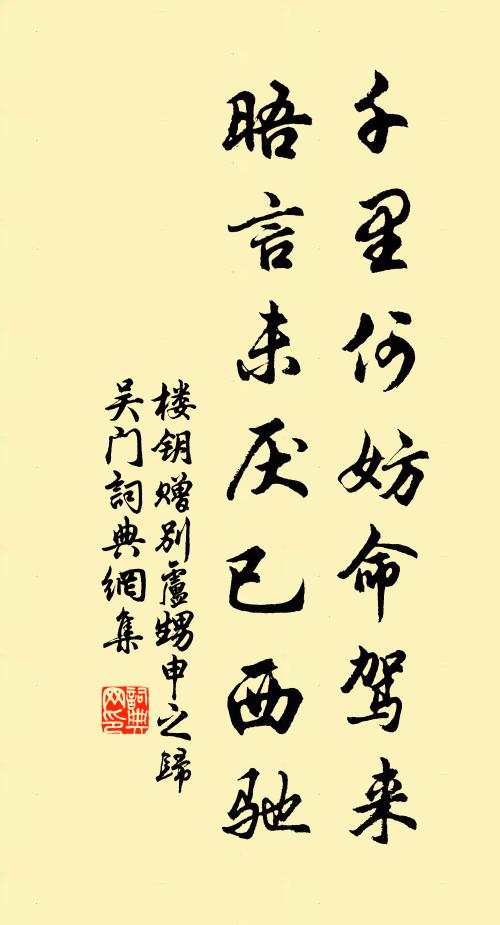 千里何妨命驾来
晤言未厌已西驰
楼钥赠别盧甥申之歸
吴门詞典網集
詞典网印